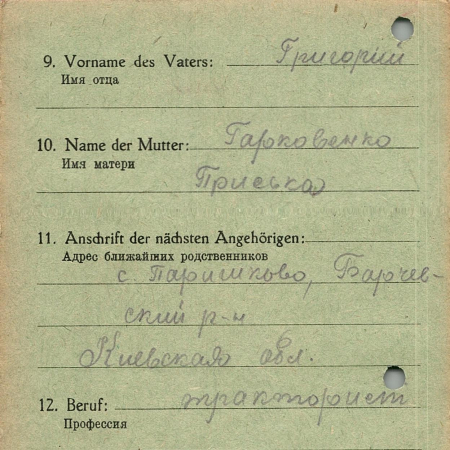 9. Vorname des Vaters: Григорий
Имя отца
10. Name der Mutter: Гарковенко
Имя матери
Приська
11. Anschrift der nächsten Angehörigen:
Адрес ближайших родственников
с. Паришково, Барчев-
ский р-н
Киевская обл.
12. Beruf: тракторист
Профессия